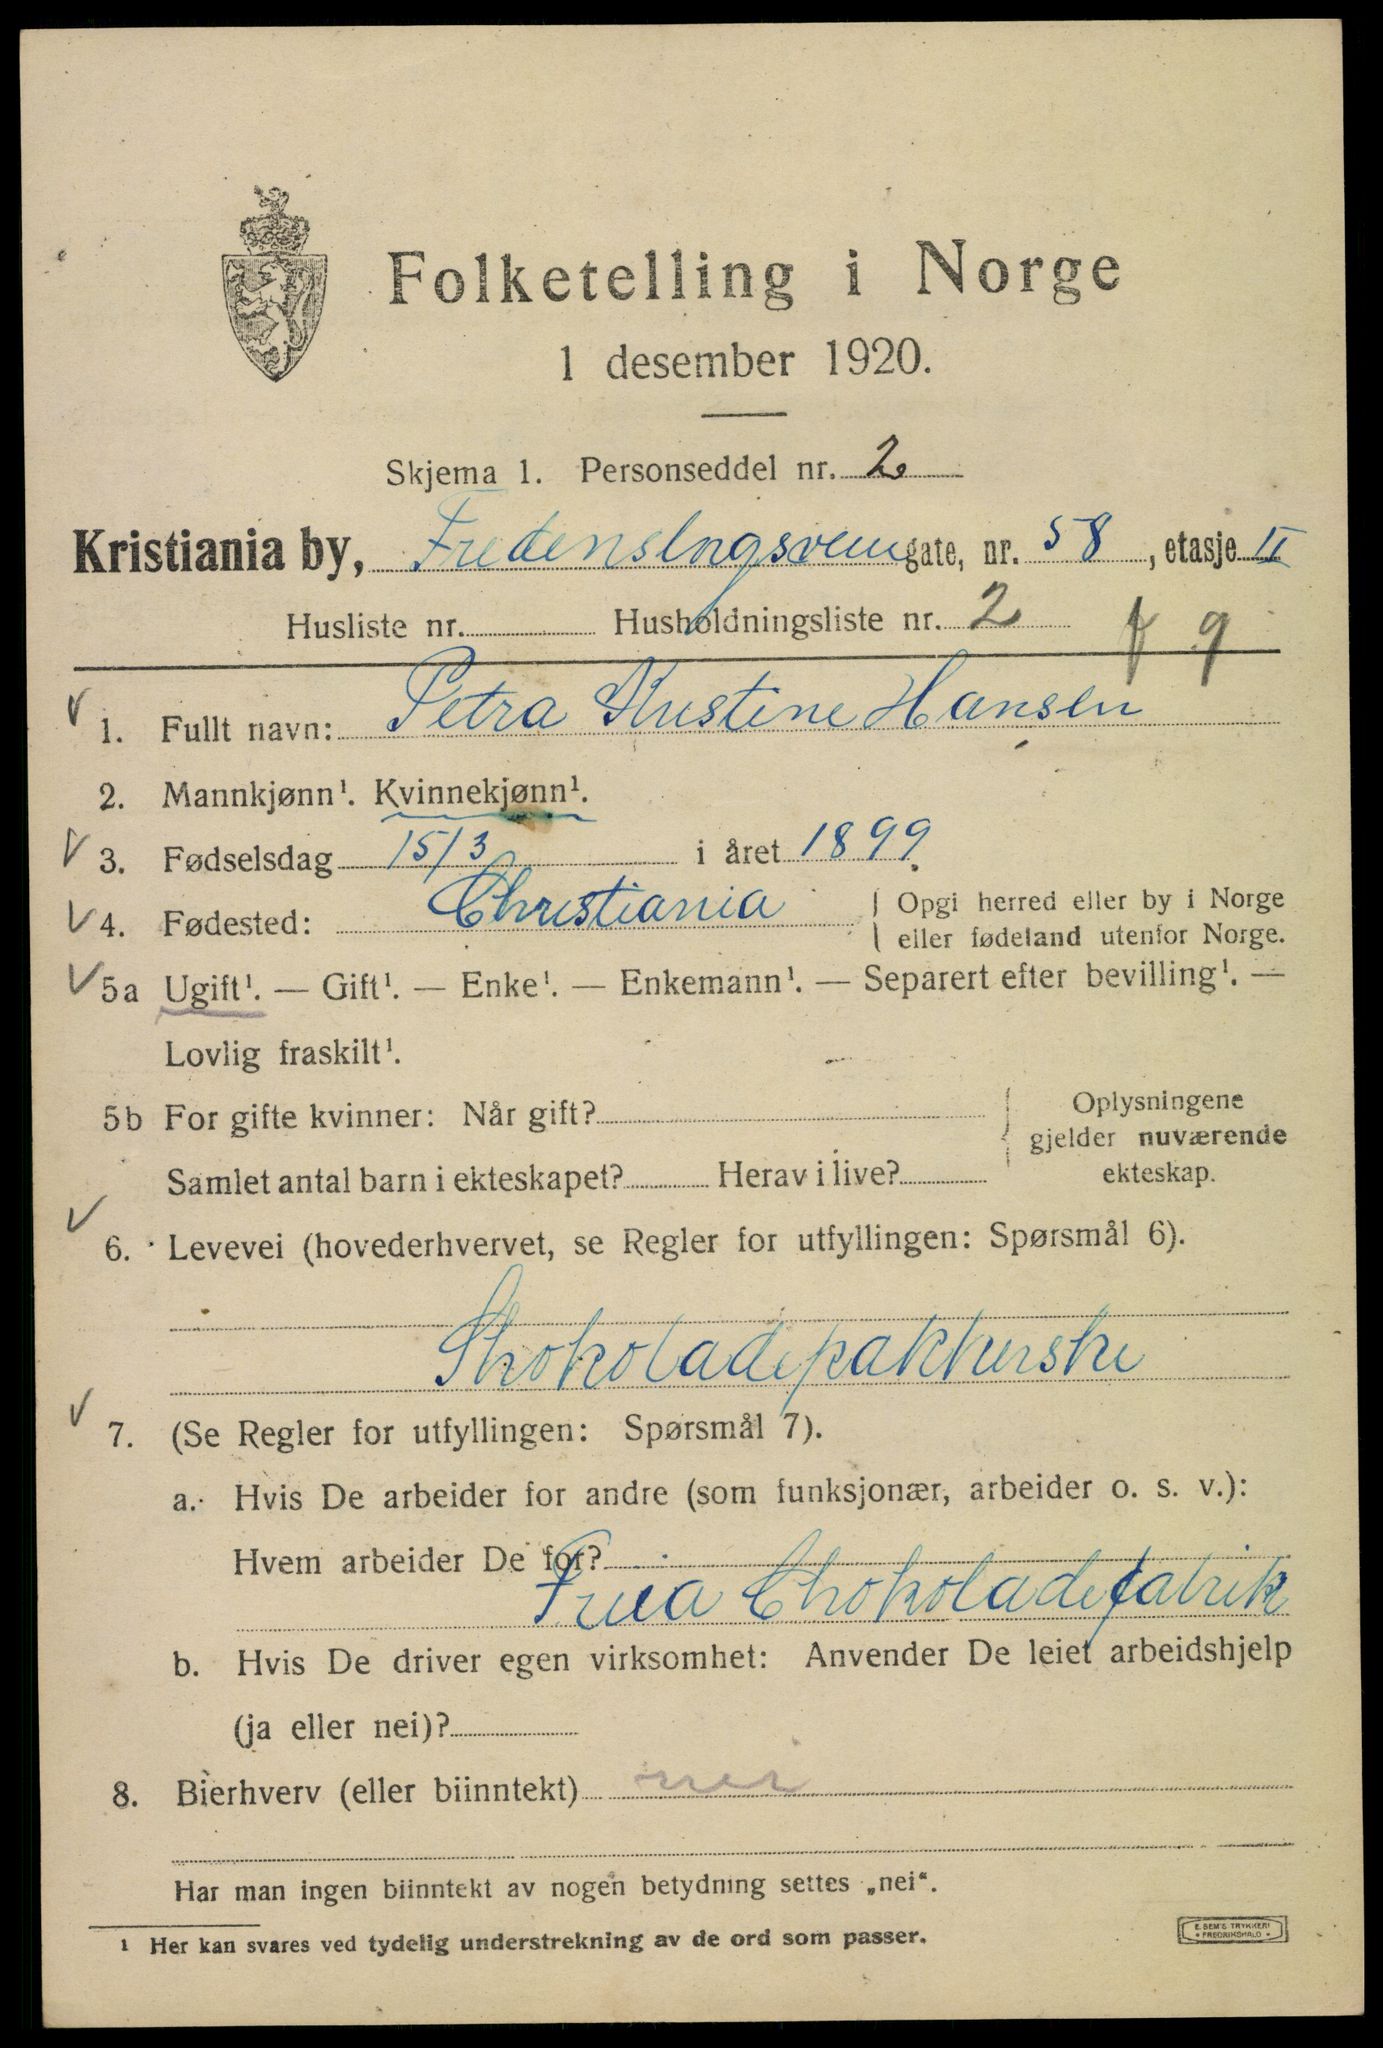 Folketelling i Norge
1 desember 1920.
Skjema 1. Personseddel nr. 2
Kristiania by, Fredensborgsveien gate, nr. 58, etasje II
Husliste nr. Husholdningsliste nr. 2 9
1. Fullt navn: Petra Kristine Hansen
2. Mannkjønn¹. Kvinnekjønn¹.
3. Fødselsdag 15/3 i året 1899
4. Fødested: Christiania Opgi herred eller by i Norge
eller fødeland utenfor Norge.
5a Ugift¹. — Gift¹. — Enke¹. — Enkemann¹. — Separert efter bevilling¹. —
Lovlig fraskilt¹.
5b For gifte kvinner: Når gift?
Samlet antal barn i ekteskapet? Herav i live?
Oplysningene
gjelder nuværende
ekteskap.
6. Levevei (hovederhvervet, se Regler for utfyllingen: Spørsmål 6).
Shokoladepakkerske
7. (Se Regler for utfyllingen: Spørsmål 7).
a. Hvis De arbeider for andre (som funksjonær, arbeider o. s. v.):
Hvem arbeider De for?
Freia Chokoladefabrik
b. Hvis De driver egen virksomhet: Anvender De leiet arbeidshjelp
(ja eller nei)?
8. Bierhverv (eller biinntekt) nei
Har man ingen biinntekt av nogen betydning settes „nei“.
¹ Her kan svares ved tydelig understrekning av de ord som passer.
E. SEM'S TRYKKERI
• FREDRIKSHALD •